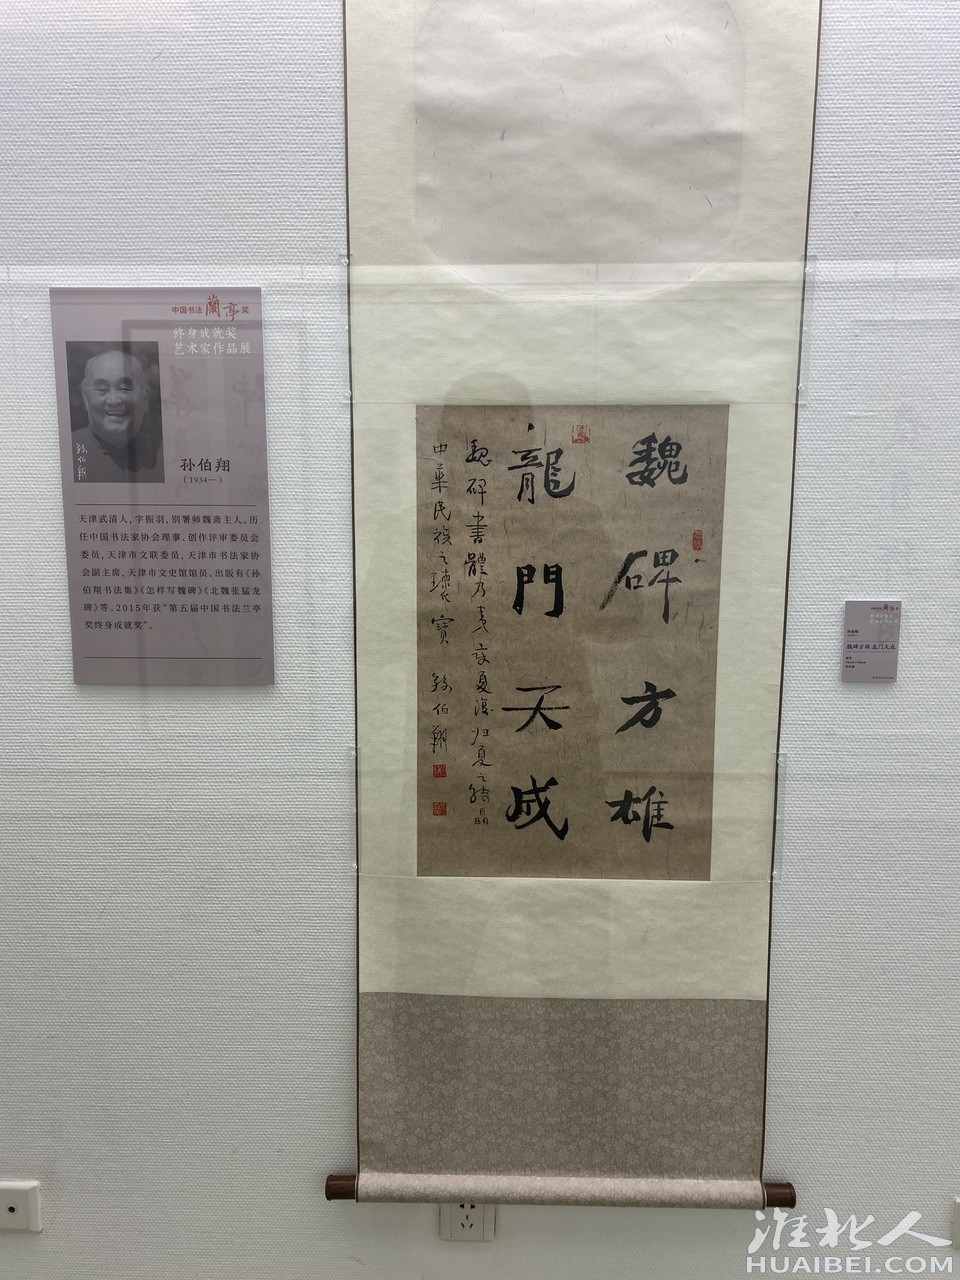 中国书法蘭亭奖
终身成就奖
艺术家作品展
孙伯翔
孙伯翔
(1934—)
天津武清人,字振羽,别署师魏斋主人。历
任中国书法家协会理事、创作评审委员会
委员,天津市文联委员,天津市书法家协
会副主席,天津市文史馆馆员。出版有《孙
伯翔书法集》《怎样写魏碑》《北魏张猛龙
碑》等。2015年获“第五届中国书法兰亭
奖终身成就奖”。
魏碑方雄
龍門天成
魏碑書體乃
夏之结晶
中華民族之瓌寶
孙伯翔
蘭亭
魏碑方雄 龙门天成
淮北人
HUAIBEI.COM